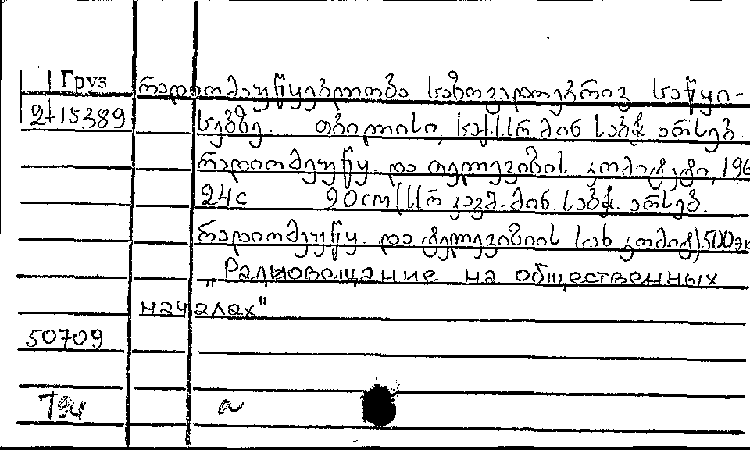 Груз
რადიომაუწყებლობა საზოგადოებრივ საწყი-
2-15389
სებზე. თბილისი, საქ.სსრ მინ საბჭ. არსებ.
რადიომაუწყ. და ტელევიზიის კომიტეტი, 196
24с 20см [სსრ კავშ. მინ. საბჭ. არსებ.
რადიომაუწყ. და ტელევიზიის სახ კომიტ] 500
„Радиовещание на общественных
началах"
50709
а